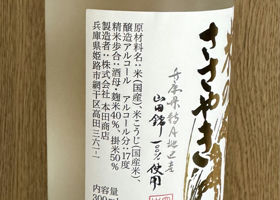 ささやき
兵庫県特A地区産
山田錦一〇〇%使用
原材料名：米(国産)、米こうじ(国産米)、
醸造アルコール　アルコール分：17度
精米歩合：酒母・麹米40%、掛米50%
製造者：株式会社 本田商店
兵庫県姫路市網干区高田三六一ノ一
内容量